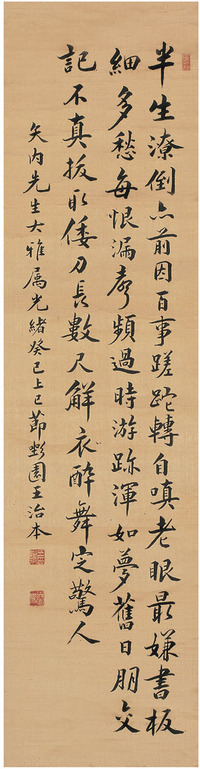 半生潦倒亦前因百事蹉跎轉自嗔老眼最嫌書板
細多愁每恨漏聲頻過時游跡渾如夢舊日朋交
記不真拔取倭刀長數尺解衣醉舞定驚人
矢内先生大雅属光緒癸巳上巳節㯽園王治本